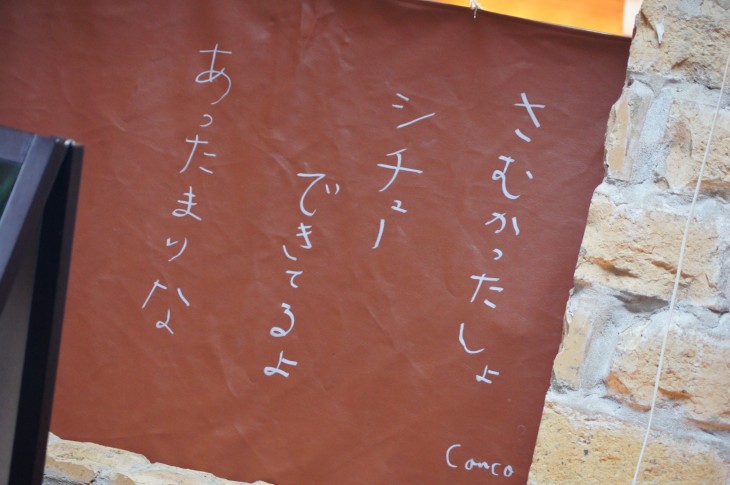 さむかったしょ
シチュー
できてるよ
あったまりな
Conco